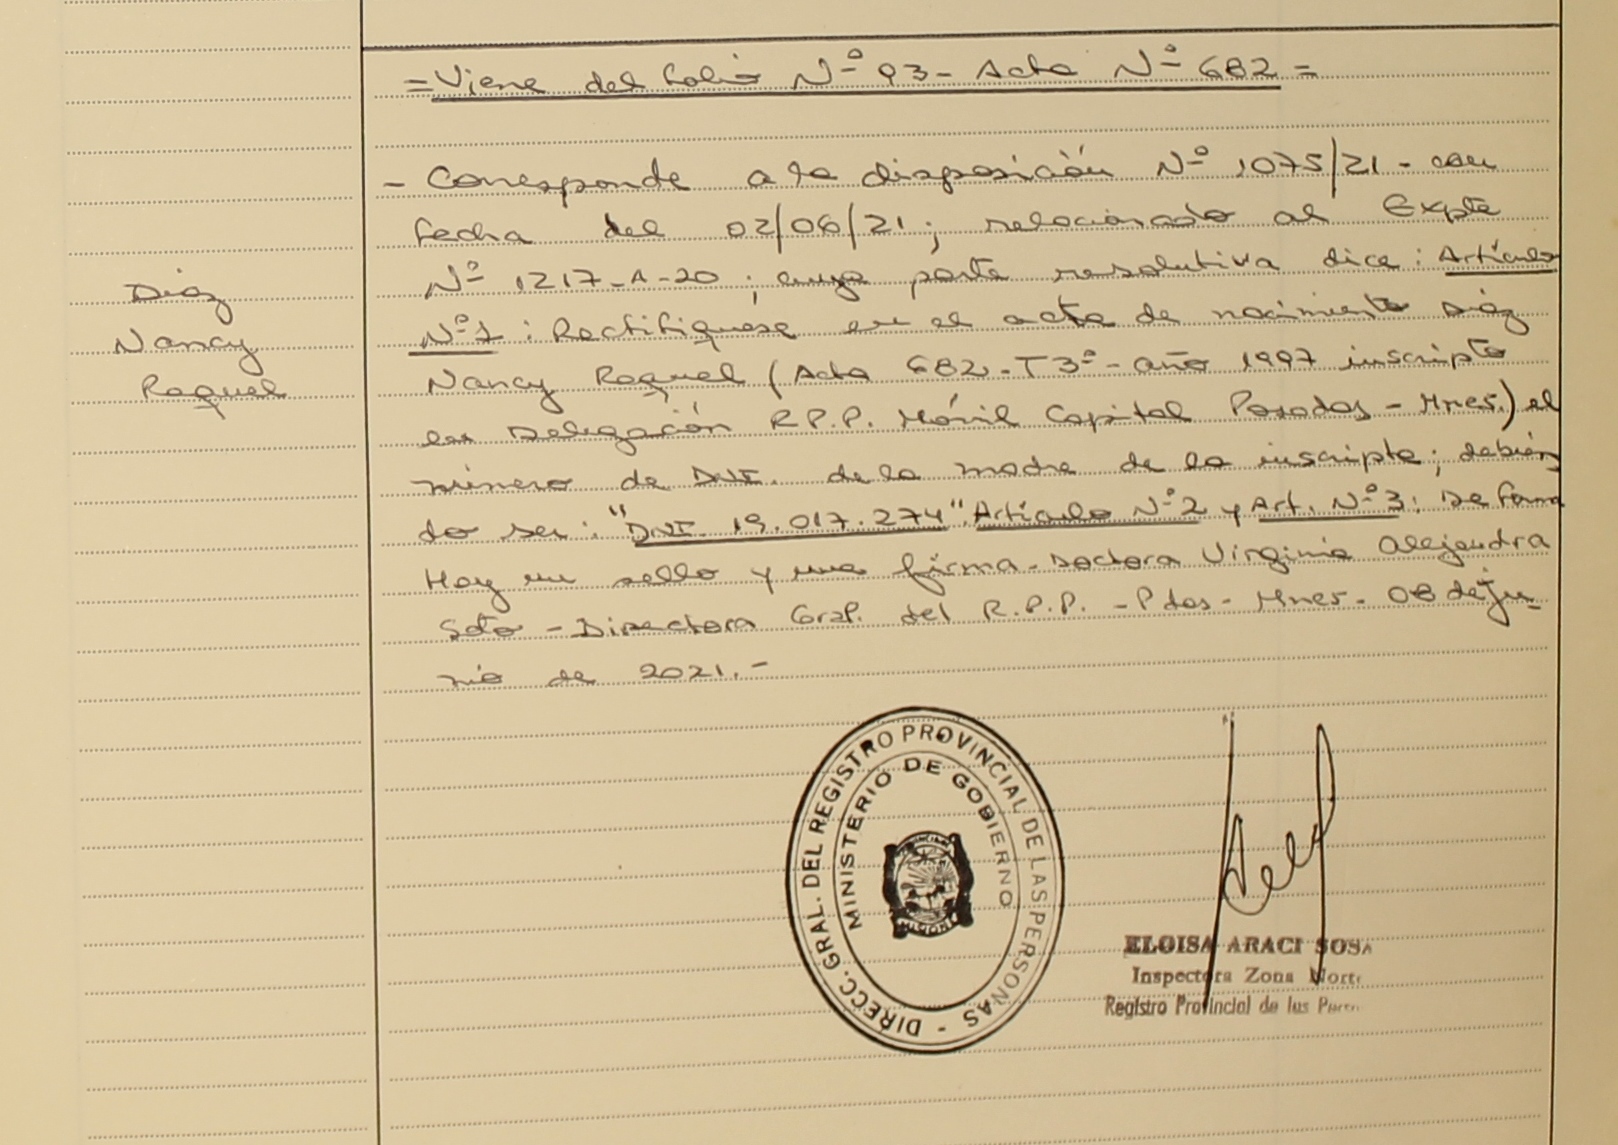 = Viene del folio Nº 93 - Acta Nº 682 =
- Corresponde a la disposición Nº 1075/21 - con
fecha del 02/06/21; relacionado al Expte
Nº 1217-A-20; cuya parte resolutiva dice: Artículo
Nº1: Rectifiquese en el acta de nacimiento Diáz
Nancy Raquel (Acta 682 - T3º - año 1997 inscripto
en Delegación R.P.P. Móvil Capital Posadas - Mnes.) el
número de DNI. de la madre de la inscripta; debién
do ser: "DNI. 19.017.274". Artículo Nº2 y Art. Nº3: De forma
Hay un sello y una firma - Doctora Virginia Alejandra
Soto - Directora Gral. del R.P.P. - Pdas - Mnes - 08 de ju
nio de 2021.-
Diaz
Nancy
Raquel
DIRECC. GRAL. DEL REGISTRO PROVINCIAL DE LAS PERSONAS -
MINISTERIO DE GOBIERNO
ELOISA ARACI SOSA
Inspectora Zona Norte
Registro Provincial de las